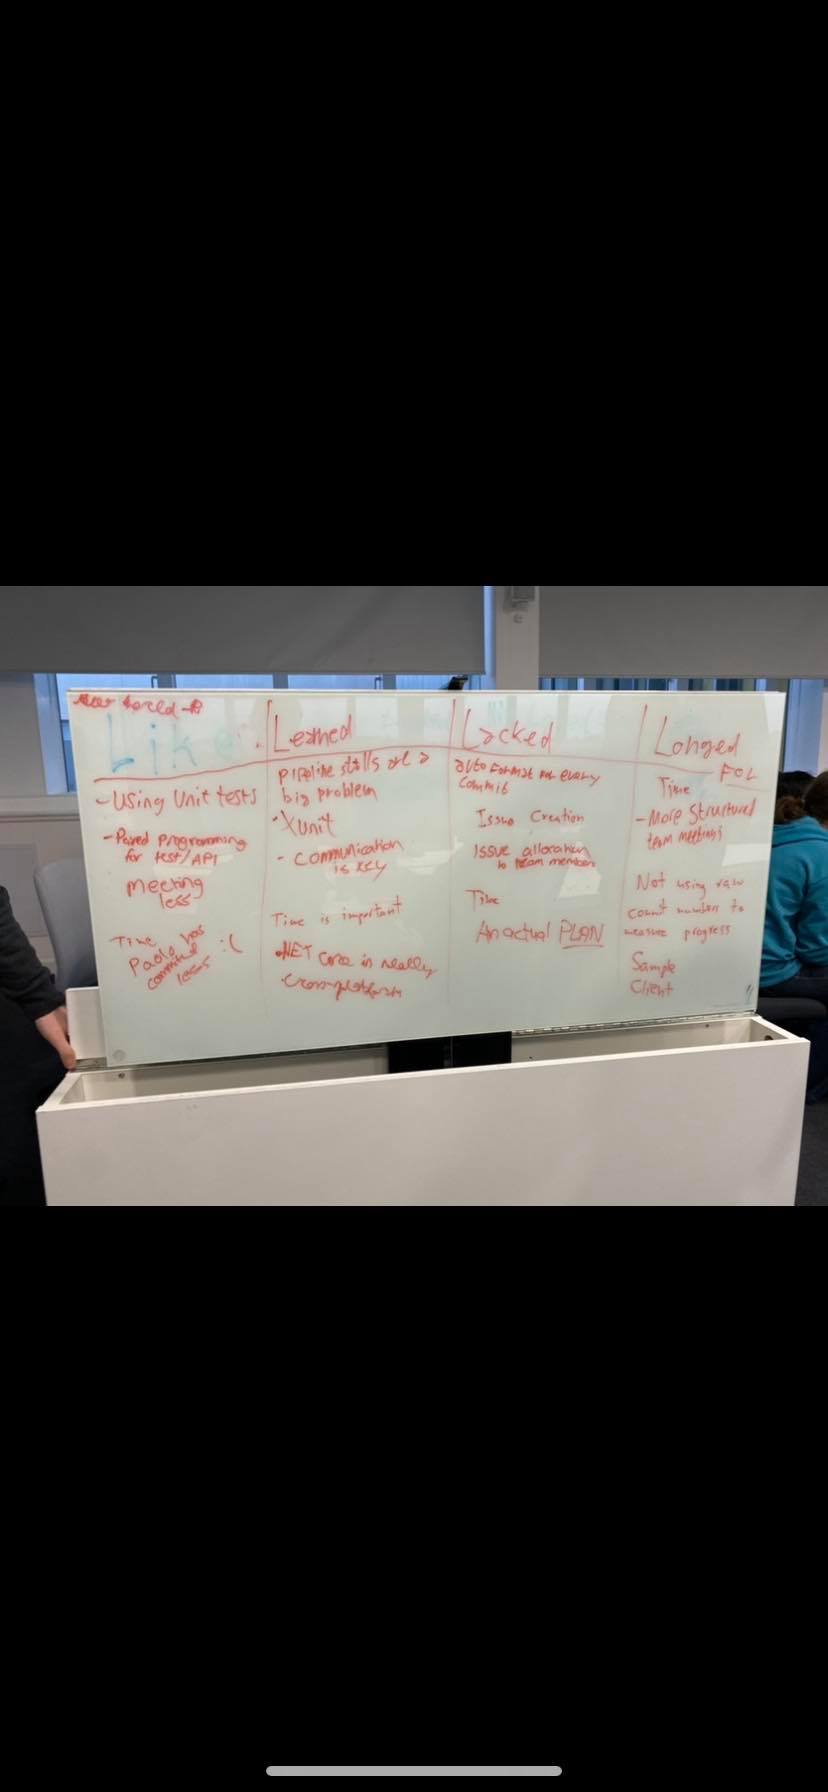 Like
Learned
Lacked
Longed
FOR
- Using Unit tests
- Paired Programming
for test/API
Meeting
less
Time
Paolo has
committed
less :(
Pipeline stalls are a
big problem
- Xunit
- Communication
is key
Time is important
.NET Core is really
crossplatform
auto format on every
commit
Issue Creation
Issue allocation
to team members
Time
An actual PLAN
Time
- More Structured
team meetings
Not using raw
commit numbers to
measure progress
Sample
Client